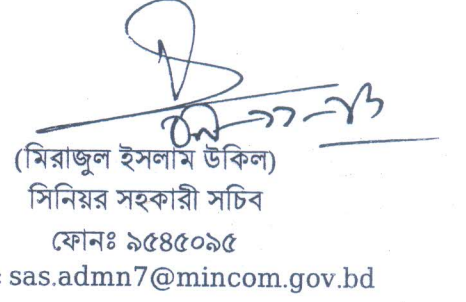 (মিরাজুল ইসলাম উকিল)
সিনিয়র সহকারী সচিব
ফোনঃ ৯৫৪৫০৯৫
: sas.admn7@mincom.gov.bd